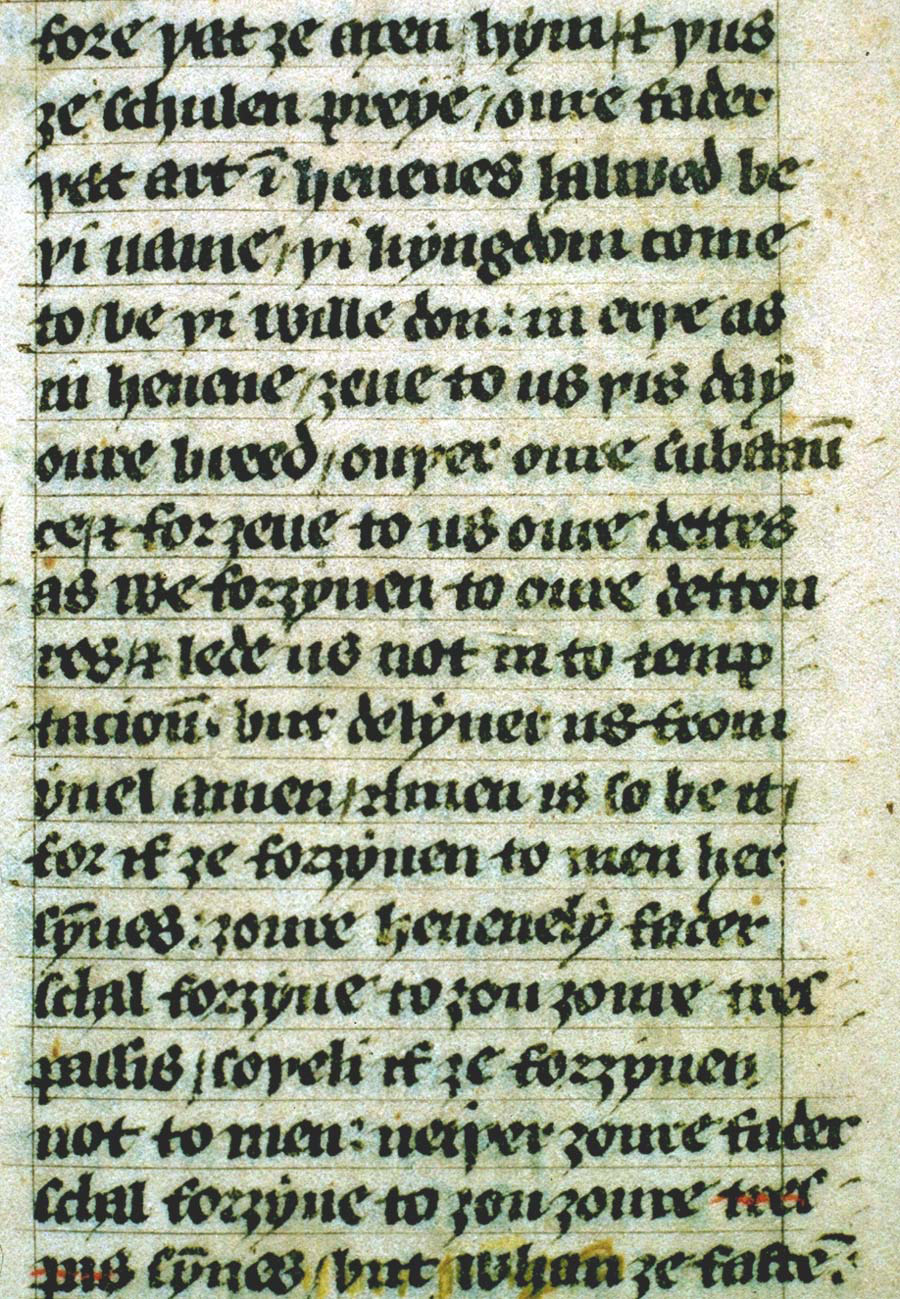 fore þat ȝe axen hym / ⁊ þus
ȝe schulen preye / oure fader
þat art ī heuenes halwed be
þi name / þi kyngdom come
to / be þi wille don : in erþe as
in heuene / ȝeue to us þis day
oure breed / ouþer oure substaūn
ce / ⁊ forȝeue to us oure dettes
as we forȝyuen to oure dettou
res / ⁊ lede us not in to temp
tacioun̄ . but delyuer us from
yuel amen / Amen is so be it /
for if ȝe forȝyuen to men her
sȳnes : ȝoure heuenely fader
schal forȝyue to ȝou ȝoure tres
passis / soþeli if ȝe forȝyuen
not to men : neiþer ȝoure fader
schal forȝyue to ȝou ȝoure tres
pas sȳnes / but whan̄ ȝe fastē :